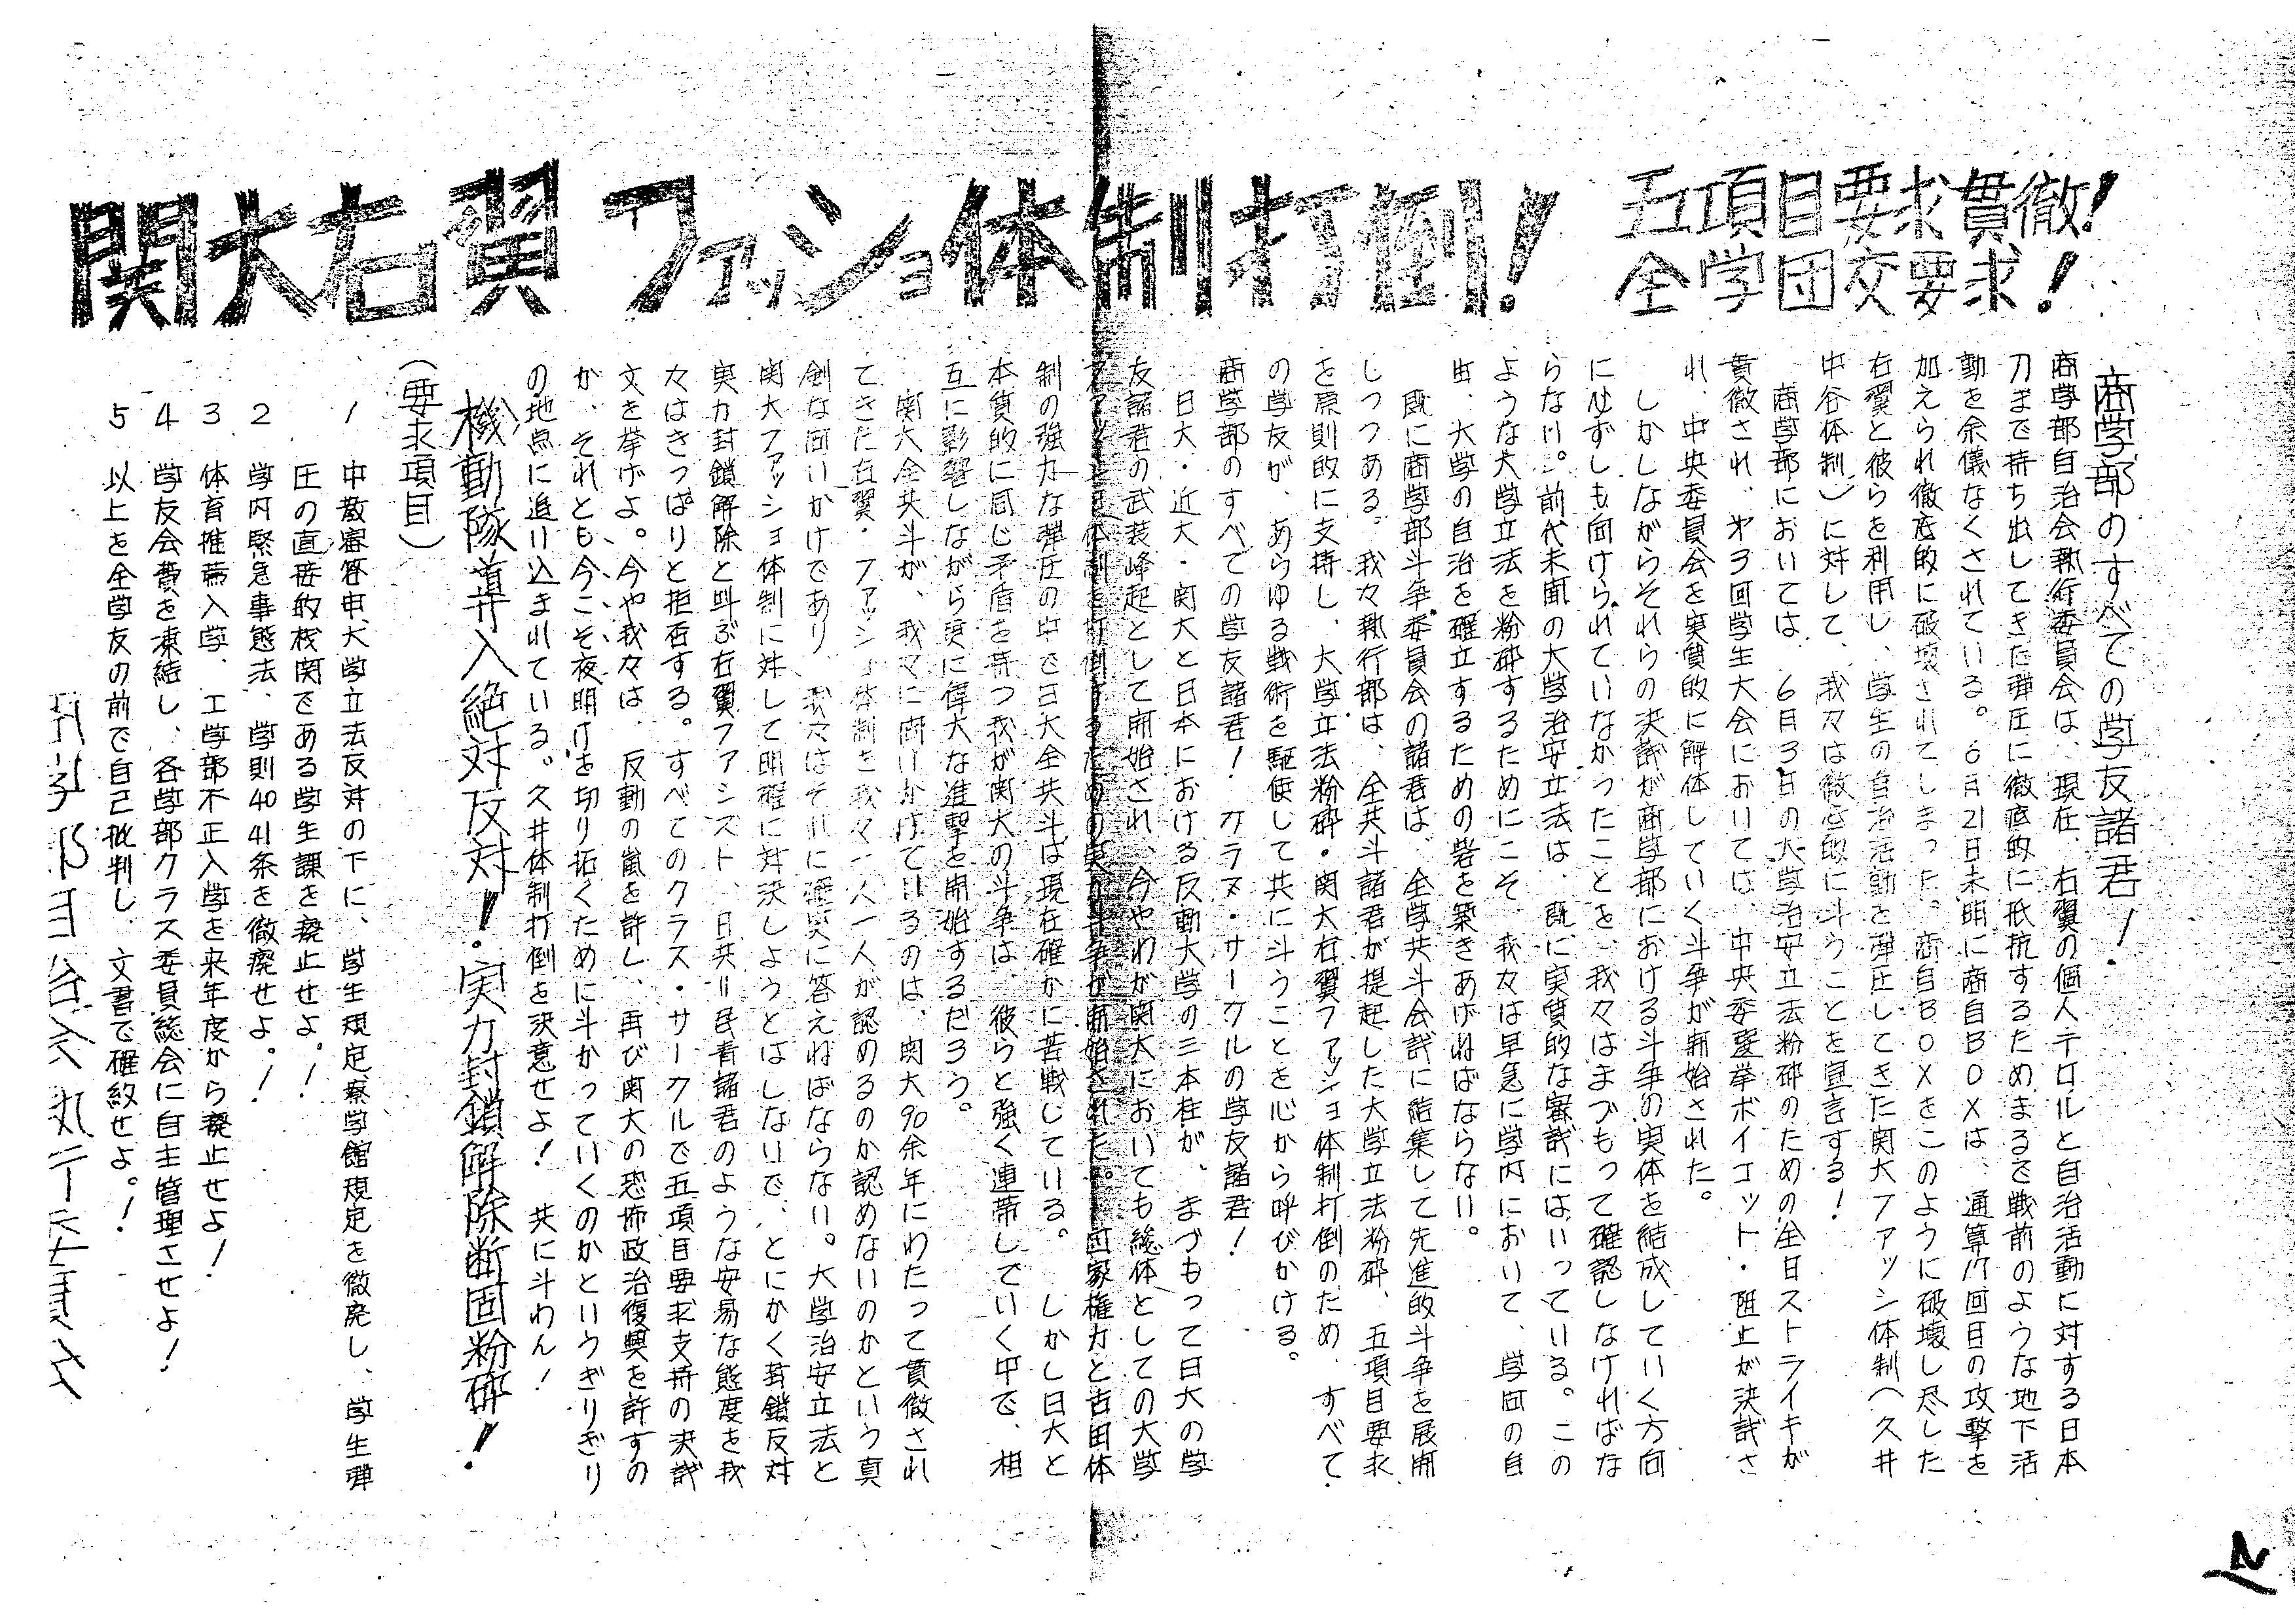 関大右翼ファッショ体制打倒!
五項目要求貫徹!
全学団交要求!
商学部のすべての学友諸君!
商学部自治会執行委員会は、現在、右翼の個人テロルと自治活動に対する日本
刀まで持ち出してきた弾圧に徹底的に抵抗するためまるで戦前のような地下活
動を余儀なくされている。6月21日未明に商自BOXは、通算17回目の攻撃を
加えられ徹底的に破壊されてしまった。商自BOXをこのように破壊し尽した
右翼と彼らを利用し、学生の自治活動を弾圧してきた関大ファッショ体制(久井
中谷体制)に対して、我々は徹底的に斗うことを宣言する!
商学部においては、6月3日の大学治安立法粉砕のための全日ストライキが
貫徹され、第3回学生大会においては、中央委選挙ボイコット・阻止が決議さ
れ、中央委員会を実質的に解体していく斗争が開始された。
しかしながらそれらの決議が商学部における斗争の実体を結成していく方向
に必ずしも向けられていなかったことを、我々はまづもって確認しなければな
らない。前代未聞の大学治安立法は、既に実質的な審議にはいっている。この
ような大学立法を粉砕するためにこそ、我々は早急に学内において、学園の自
由、大学の自治を確立するための砦を築きあげねばならない。
既に商学部斗争委員会の諸君は、全学共斗会議に結集して先進的斗争を展開
しつつある。我々執行部は、全共斗諸君が提起した大学立法粉砕、五項目要求
を原則的に支持し、大学立法粉砕・関大右翼ファッショ体制打倒のため、すべて
の学友が、あらゆる戦術を駆使して共に斗うことを心から呼びかける。
商学部のすべての学友諸君! クラス・サークルの学友諸君!
日大・近大・関大と日本における反動大学の三本柱が、まづもって日大の学
友諸君の武装蜂起として開始され、今やわが関大においても総体としての大学
ファッショ体制を打倒するための実力斗争が開始された。国家権力と古田体
制の強力な弾圧の中で日大全共斗は現在確かに苦戦している。しかし日大と
本質的に同じ矛盾を持つ我が関大の斗争は、彼らと強く連帯していく中で、相
互に影響しながら更に偉大な進撃を開始するだろう。
関大全共斗が、我々に問いかけているのは、関大90余年にわたって貫徹され
てきた右翼・ファッショ体制を我々一人一人が認めるのか認めないのかという真
剣な問いかけであり、我々はそれに確実に答えねばならない。大学治安立法と
関大ファッショ体制に対して明確に対決しようとはしないで、とにかく封鎖反対
実力封鎖解除と叫ぶ右翼ファシスト、日共=民青諸君のような安易な態度を我
々はきっぱりと拒否する。すべてのクラス・サークルで五項目要求支持の決議
文を挙げよ。今や我々は、反動の嵐を許し、再び関大の恐怖政治復興を許すの
か、それとも今こそ夜明けを切り拓くために斗かっていくのかというぎりぎり
の地点に追い込まれている。久井体制打倒を決意せよ! 共に斗わん!
機動隊導入絶対反対!・実力封鎖解除断固粉砕!
(要求項目)
1 中教審答申大学立法反対の下に、学生規定寮学館規定を徹廃し、学生弾
圧の直接的機関である学生課を廃止せよ!
2 学内緊急事態法、学則40 41条を徹廃せよ!
3 体育推薦入学、工学部不正入学を来年度から廃止せよ!
4 学友会費を凍結し、各学部クラス委員総会に自主管理させよ!
5 以上を全学友の前で自己批判し、文書で確約せよ!
学部自治会執行委員会